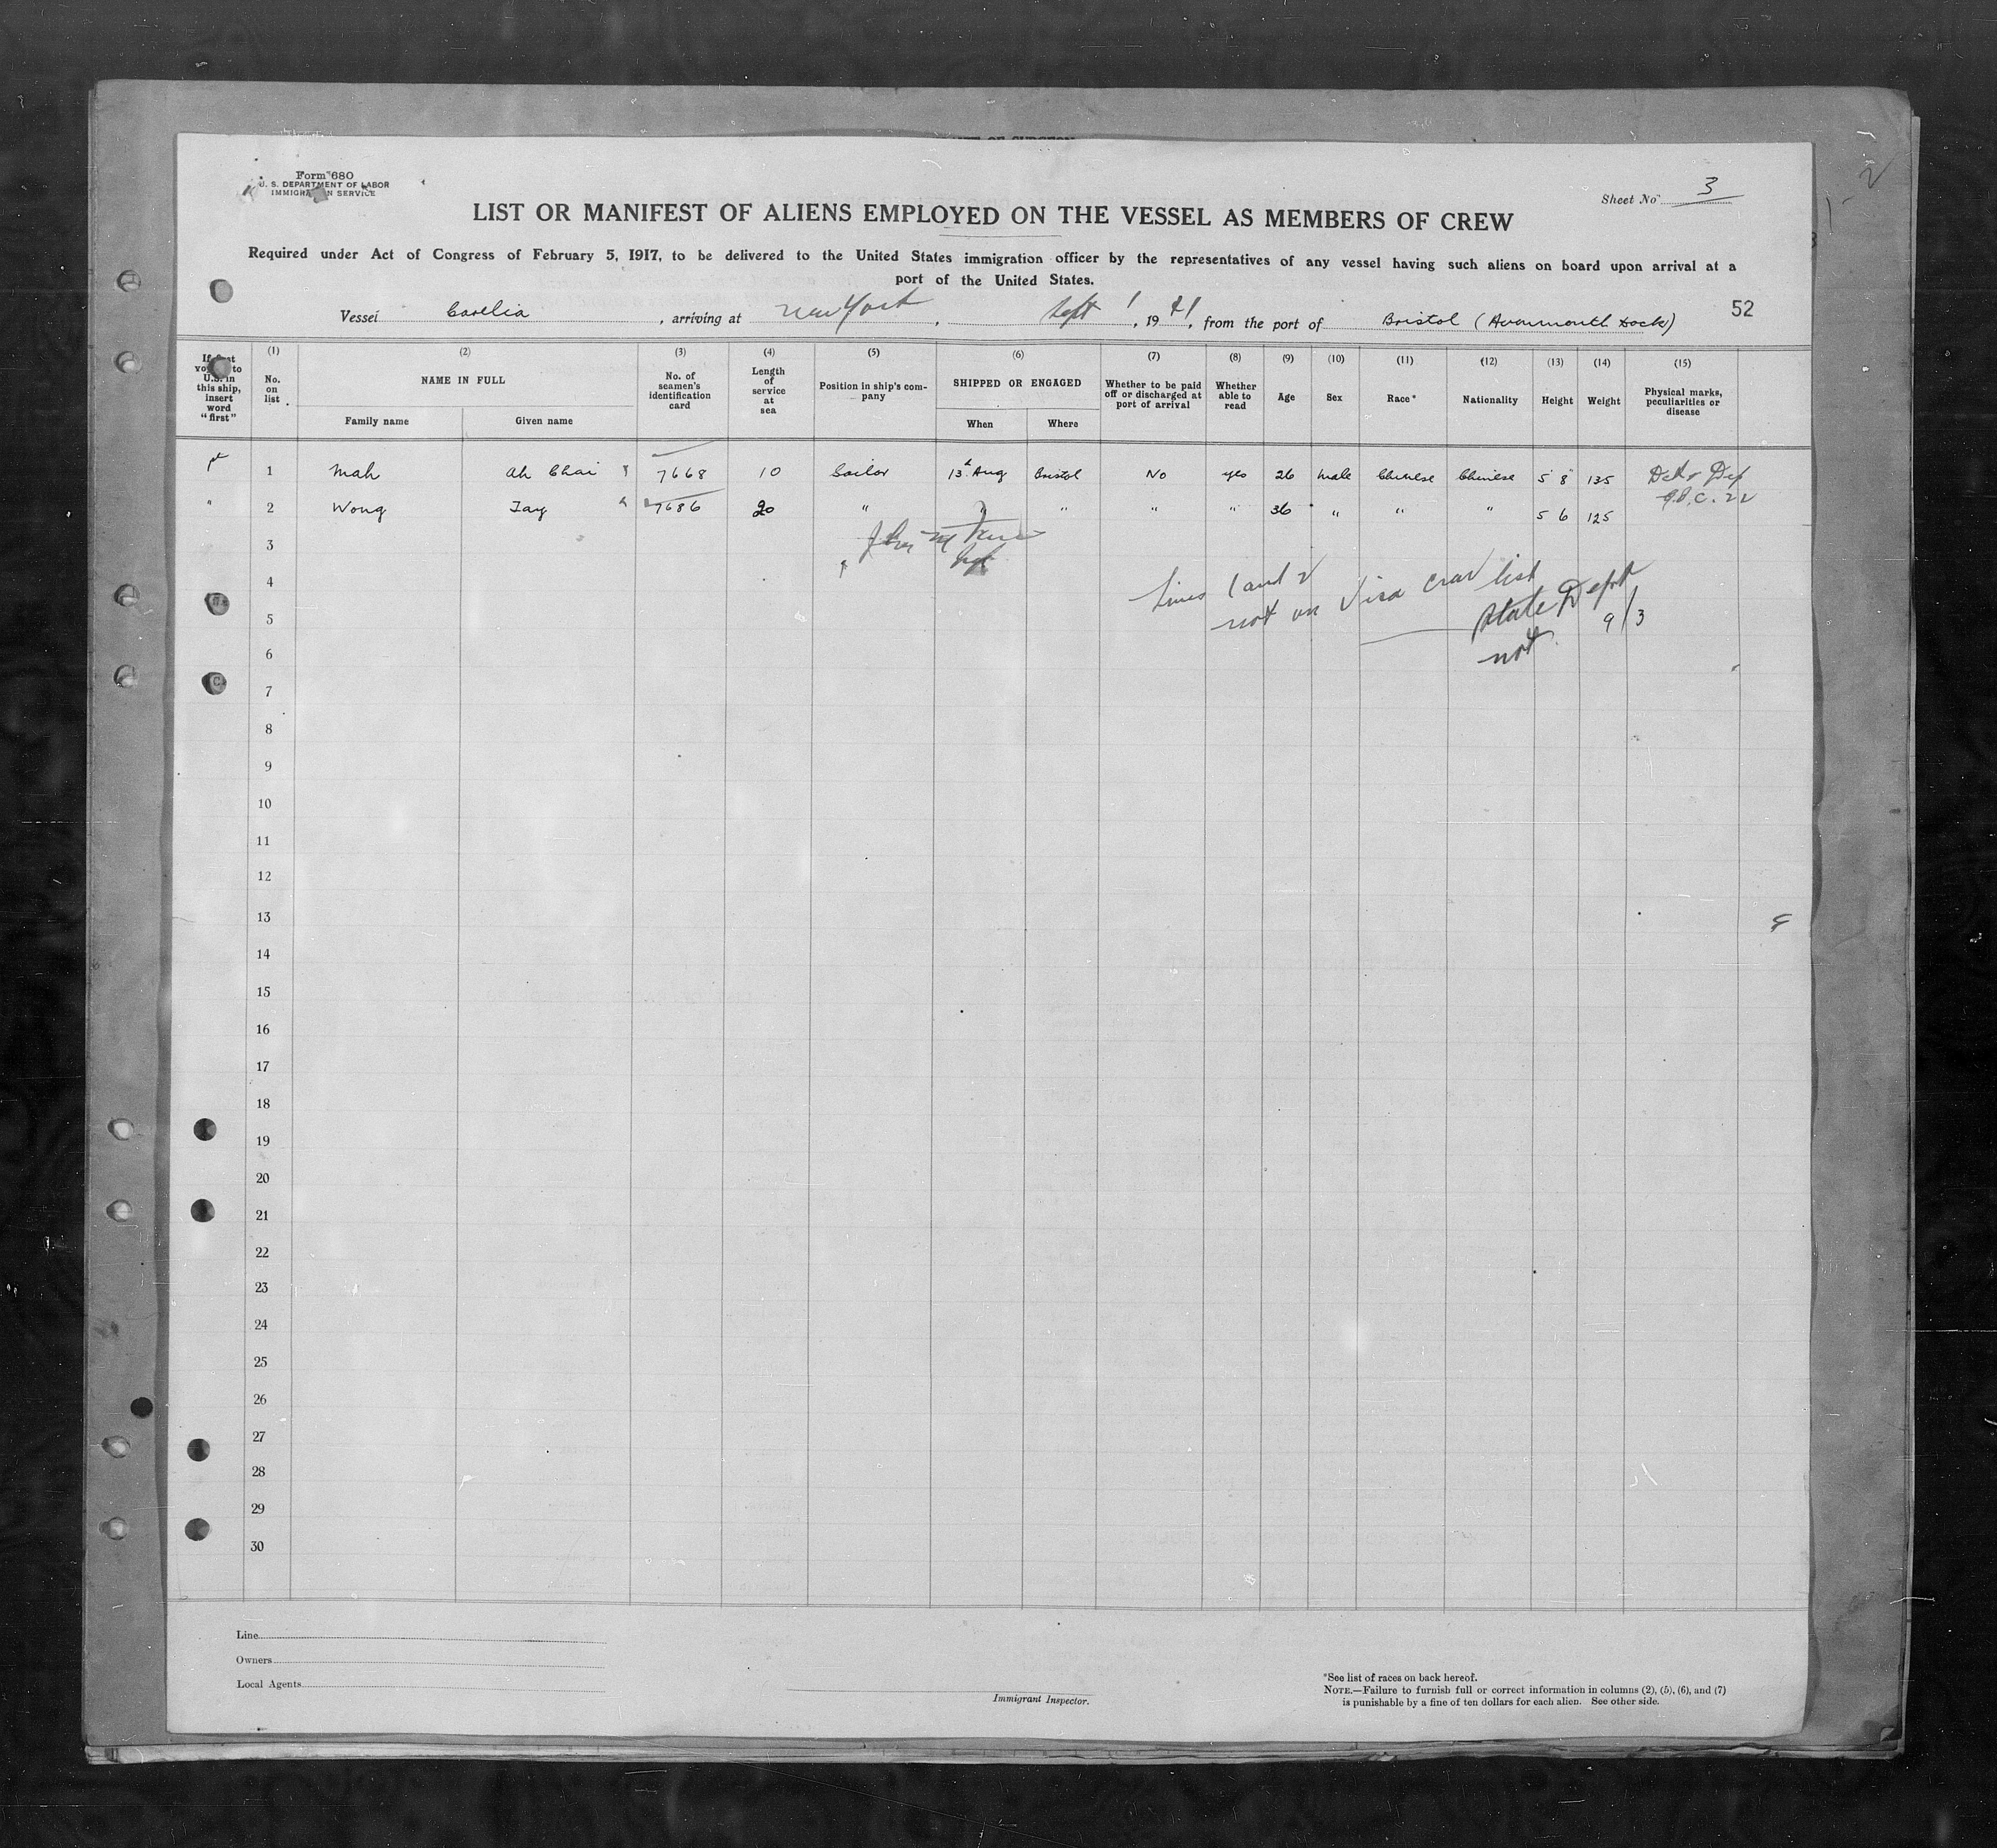 Form 680
U. S. DEPARTMENT OF LABOR
IMMIGRATION SERVICE
Sheet No. 3
LIST OR MANIFEST OF ALIENS EMPLOYED ON THE VESSEL AS MEMBERS OF CREW
Required under Act of Congress of February 5, 1917, to be delivered to the United States immigration officer by the representatives of any vessel having such aliens on board upon arrival at a
port of the United States.
52
Vessel Carelia, arriving at New York, Sept 1, 1941, from the port of Bristol (Avonmouth Dock)
If first voyage to U.S. in this ship, insert word "first"
(1) No. on list
(2) NAME IN FULL
Family name
Given name
(3) No. of seamen's identification card
(4) Length of service at sea
(5) Position in ship's company
(6) SHIPPED OR ENGAGED
When
Where
(7) Whether to be paid off or discharged at port of arrival
(8) Whether able to read
(9) Age
(10) Sex
(11) Race*
(12) Nationality
(13) Height
(14) Weight
(15) Physical marks, peculiarities or disease
1 Mah Ah Chai 7668 10 Sailor 13th Aug Bristol No yes 26 male Chinese Chinese 5 8 135
2 Wong Tay 7686 20 " " " " " 36 " " " 5 6 125
3
4
5
6
7
8
9
10
11
12
13
14
15
16
17
18
19
20
21
22
23
24
25
26
27
28
29
30
Lines 1 and 2
not on Visa crew list
State Dept
not 9/3
Line
Owners
Local Agents
Immigrant Inspector.
*See list of races on back hereof.
NOTE.—Failure to furnish full or correct information in columns (2), (5), (6), and (7)
is punishable by a fine of ten dollars for each alien. See other side.